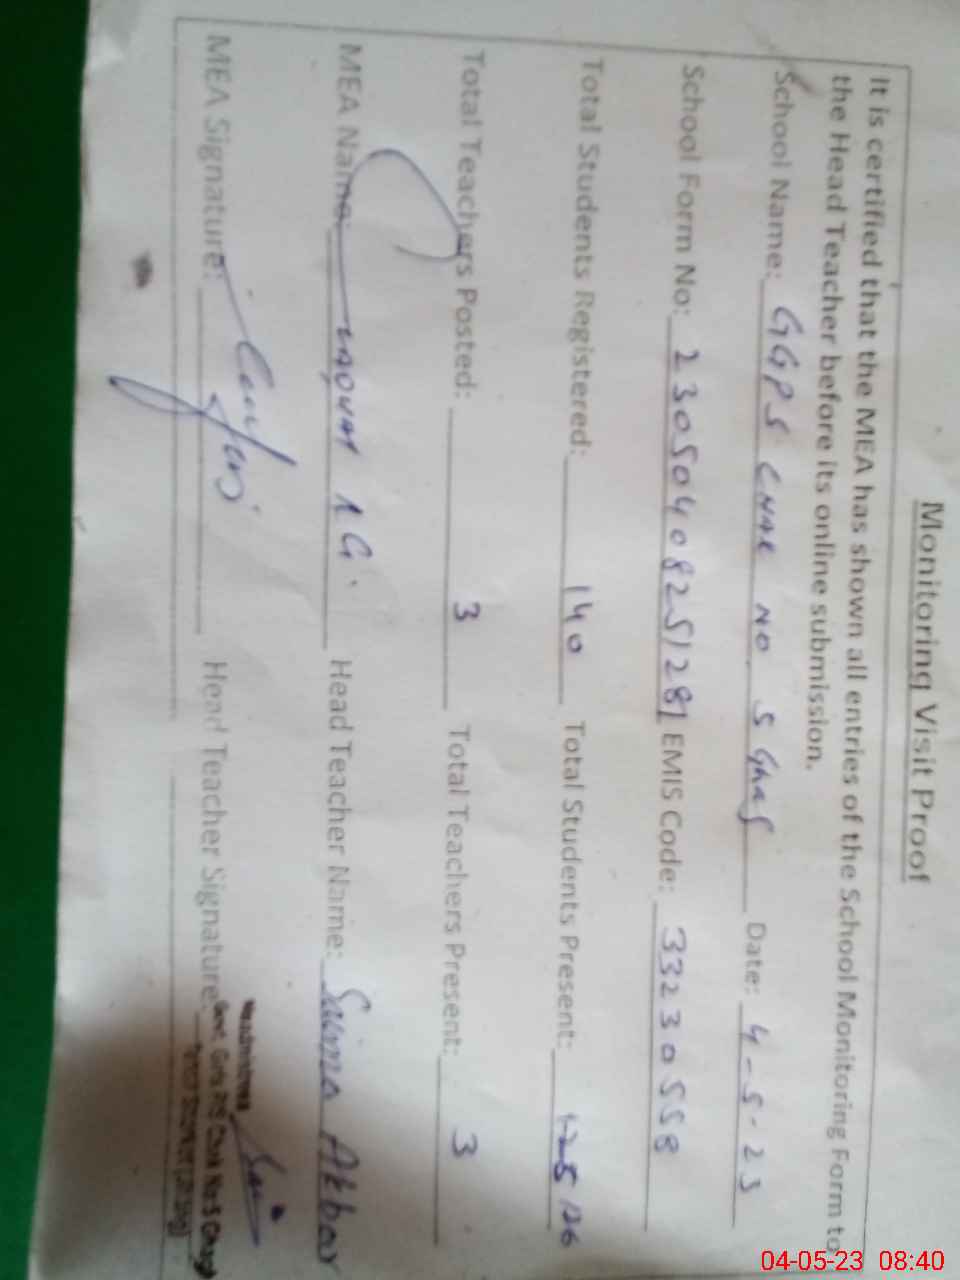 Monitoring Visit Proof
It is certified that the MEA has shown all entries of the School Monitoring Form to
the Head Teacher before its online submission.
School Name: GGPS CHAK NO. 5 Ghag Date: 4-5-23
School Form No: 23050408251281 EMIS Code: 33230558
Total Students Registered: 140 Total Students Present: 126
Total Teachers Posted: 3 Total Teachers Present: 3
MEA Name: Head Teacher Name: Saima Akbar
MEA Signature: Head Teacher Signature:
Headmistress
Govt. Girls P/S Chak No-5 Ghagh
04-05-23 08:40